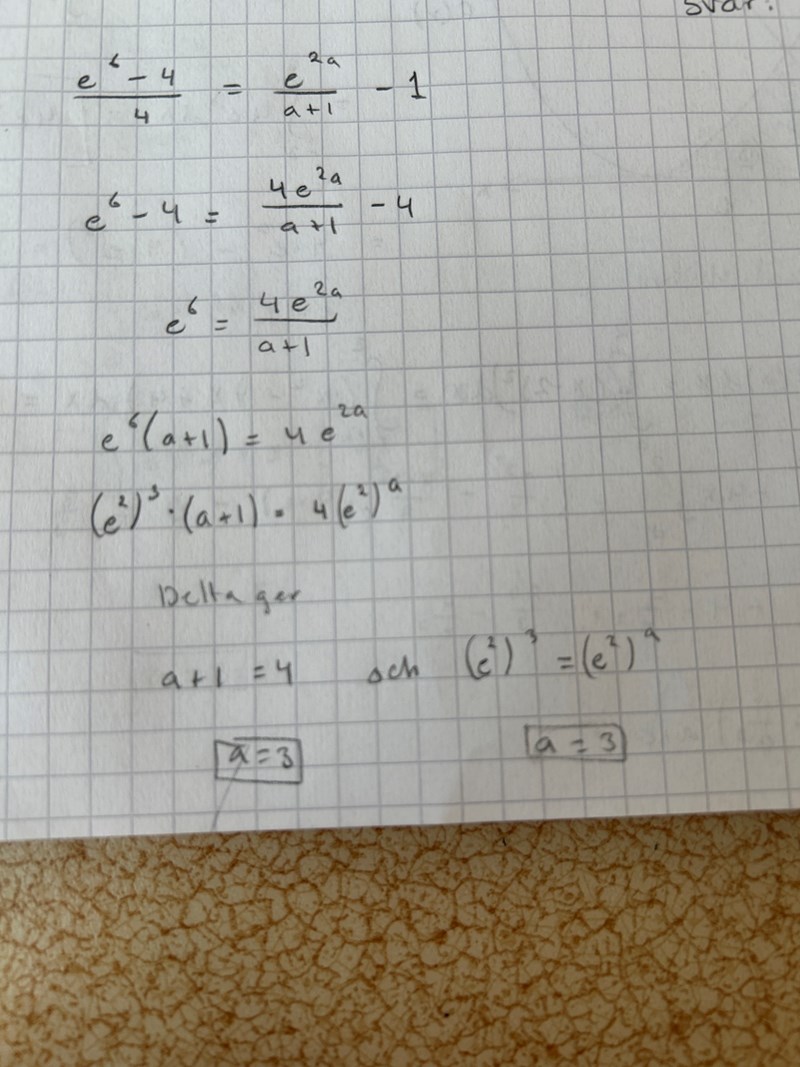 svar:
e^6 - 4 / 4 = e^2a / a+1 - 1
e^6 - 4 = 4e^2a / a+1 - 4
e^6 = 4e^2a / a+1
e^6(a+1) = 4e^2a
(e^2)^3 · (a+1) = 4(e^2)^a
Detta ger
a+1 = 4 och (e^2)^3 = (e^2)^a
a = 3 a = 3